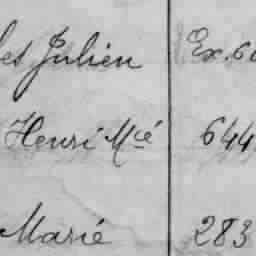 les Julien Ex. 60
Henri Mcé 644
Marie 283